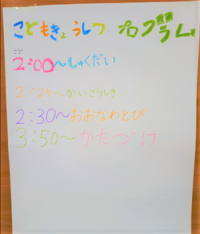 こどもきょうしつ プログラム
2:00〜しゅくだい
2:25〜かいこうしき
2:30〜おおなわとび
3:50〜かたづけ